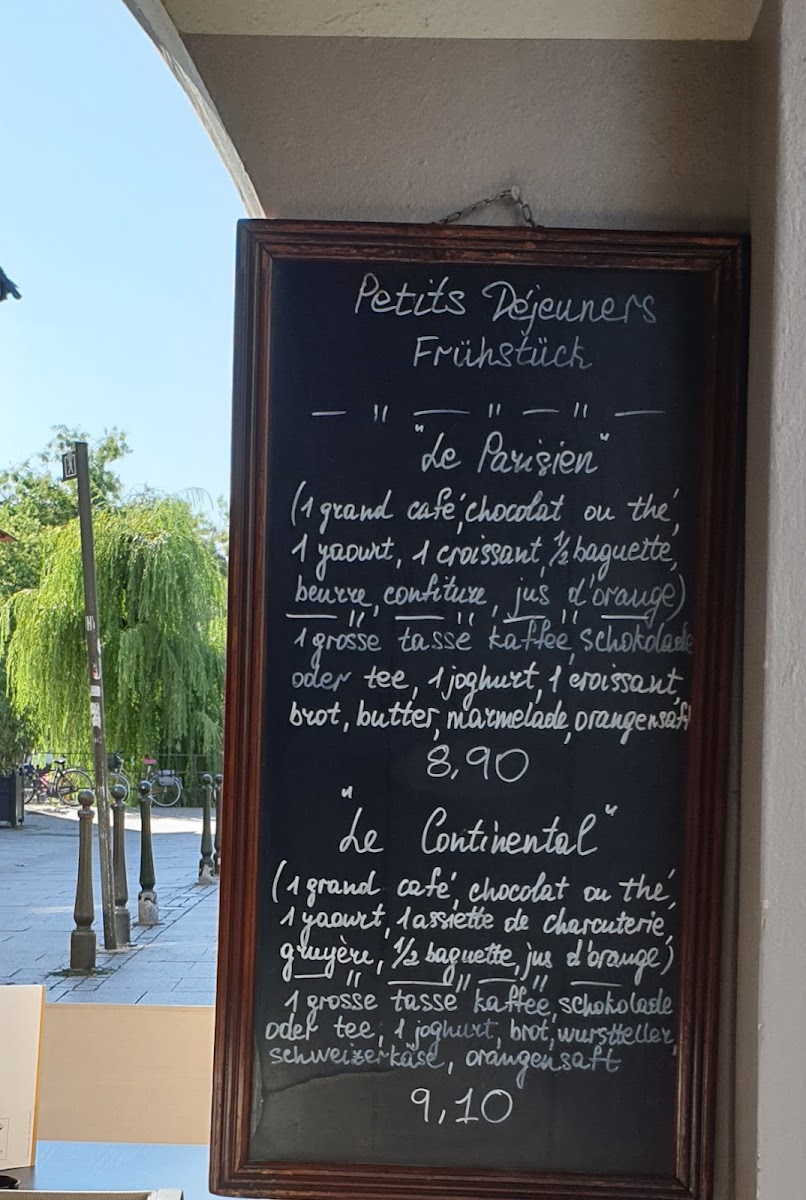 Petits Déjeuners
Frühstück
— " — " — " —
"Le Parisien"
(1 grand café, chocolat ou thé,
1 yaourt, 1 croissant, 1/2 baguette,
beurre, confiture, jus d'orange)
— " — " — " —
1 grosse tasse kaffee, schokolade
oder tee, 1 joghurt, 1 croissant,
brot, butter, marmelade, orangensaft
8,90
"Le Continental"
(1 grand café, chocolat ou thé,
1 yaourt, 1 assiette de charcuterie,
gruyère, 1/2 baguette, jus d'orange)
— " — " — " —
1 grosse tasse kaffee, schokolade
oder tee, 1 joghurt, brot, wurstteller,
schweizerkäse, orangensaft
9,10